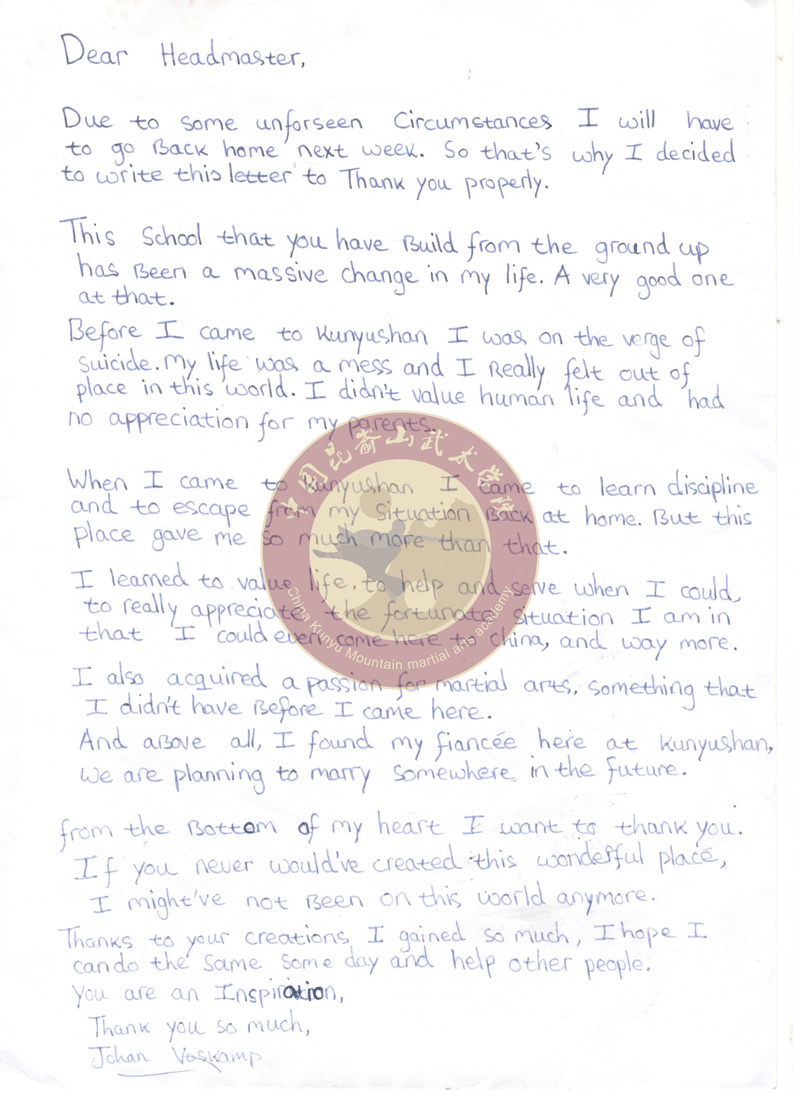 Dear Headmaster,
Due to some unforseen Circumstances I will have
to go Back home next week. So that's why I decided
to write this letter to Thank you properly.
This School that you have Build from the ground up
has Been a massive change in my life. A very good one
at that.
Before I came to Kunyushan I was on the verge of
suicide. My life was a mess and I Really felt out of
place in this world. I didn't value human life and had
no appreciation for my parents.
When I came to Kunyushan I came to learn discipline
and to escape from my situation Back at home. But this
place gave me so much more than that.
I learned to value life, to help and serve when I could,
to really appreciate the fortunate situation I am in
that I could even come here to china, and way more.
I also acquired a passion for martial arts, something that
I didn't have Before I came here.
And aBove all, I found my fiancée here at Kunyushan,
we are planning to marry somewhere in the future.
from the Bottom of my heart I want to thank you.
If you never would've created this wonderful place,
I might've not Been on this world anymore.
Thanks to your creations, I gained so much, I hope I
can do the same some day and help other people.
You are an Inspiration,
Thank you so much,
Johan Voskamp
中国昆嵛山武术学院
China Kunyu Mountain martial arts academy